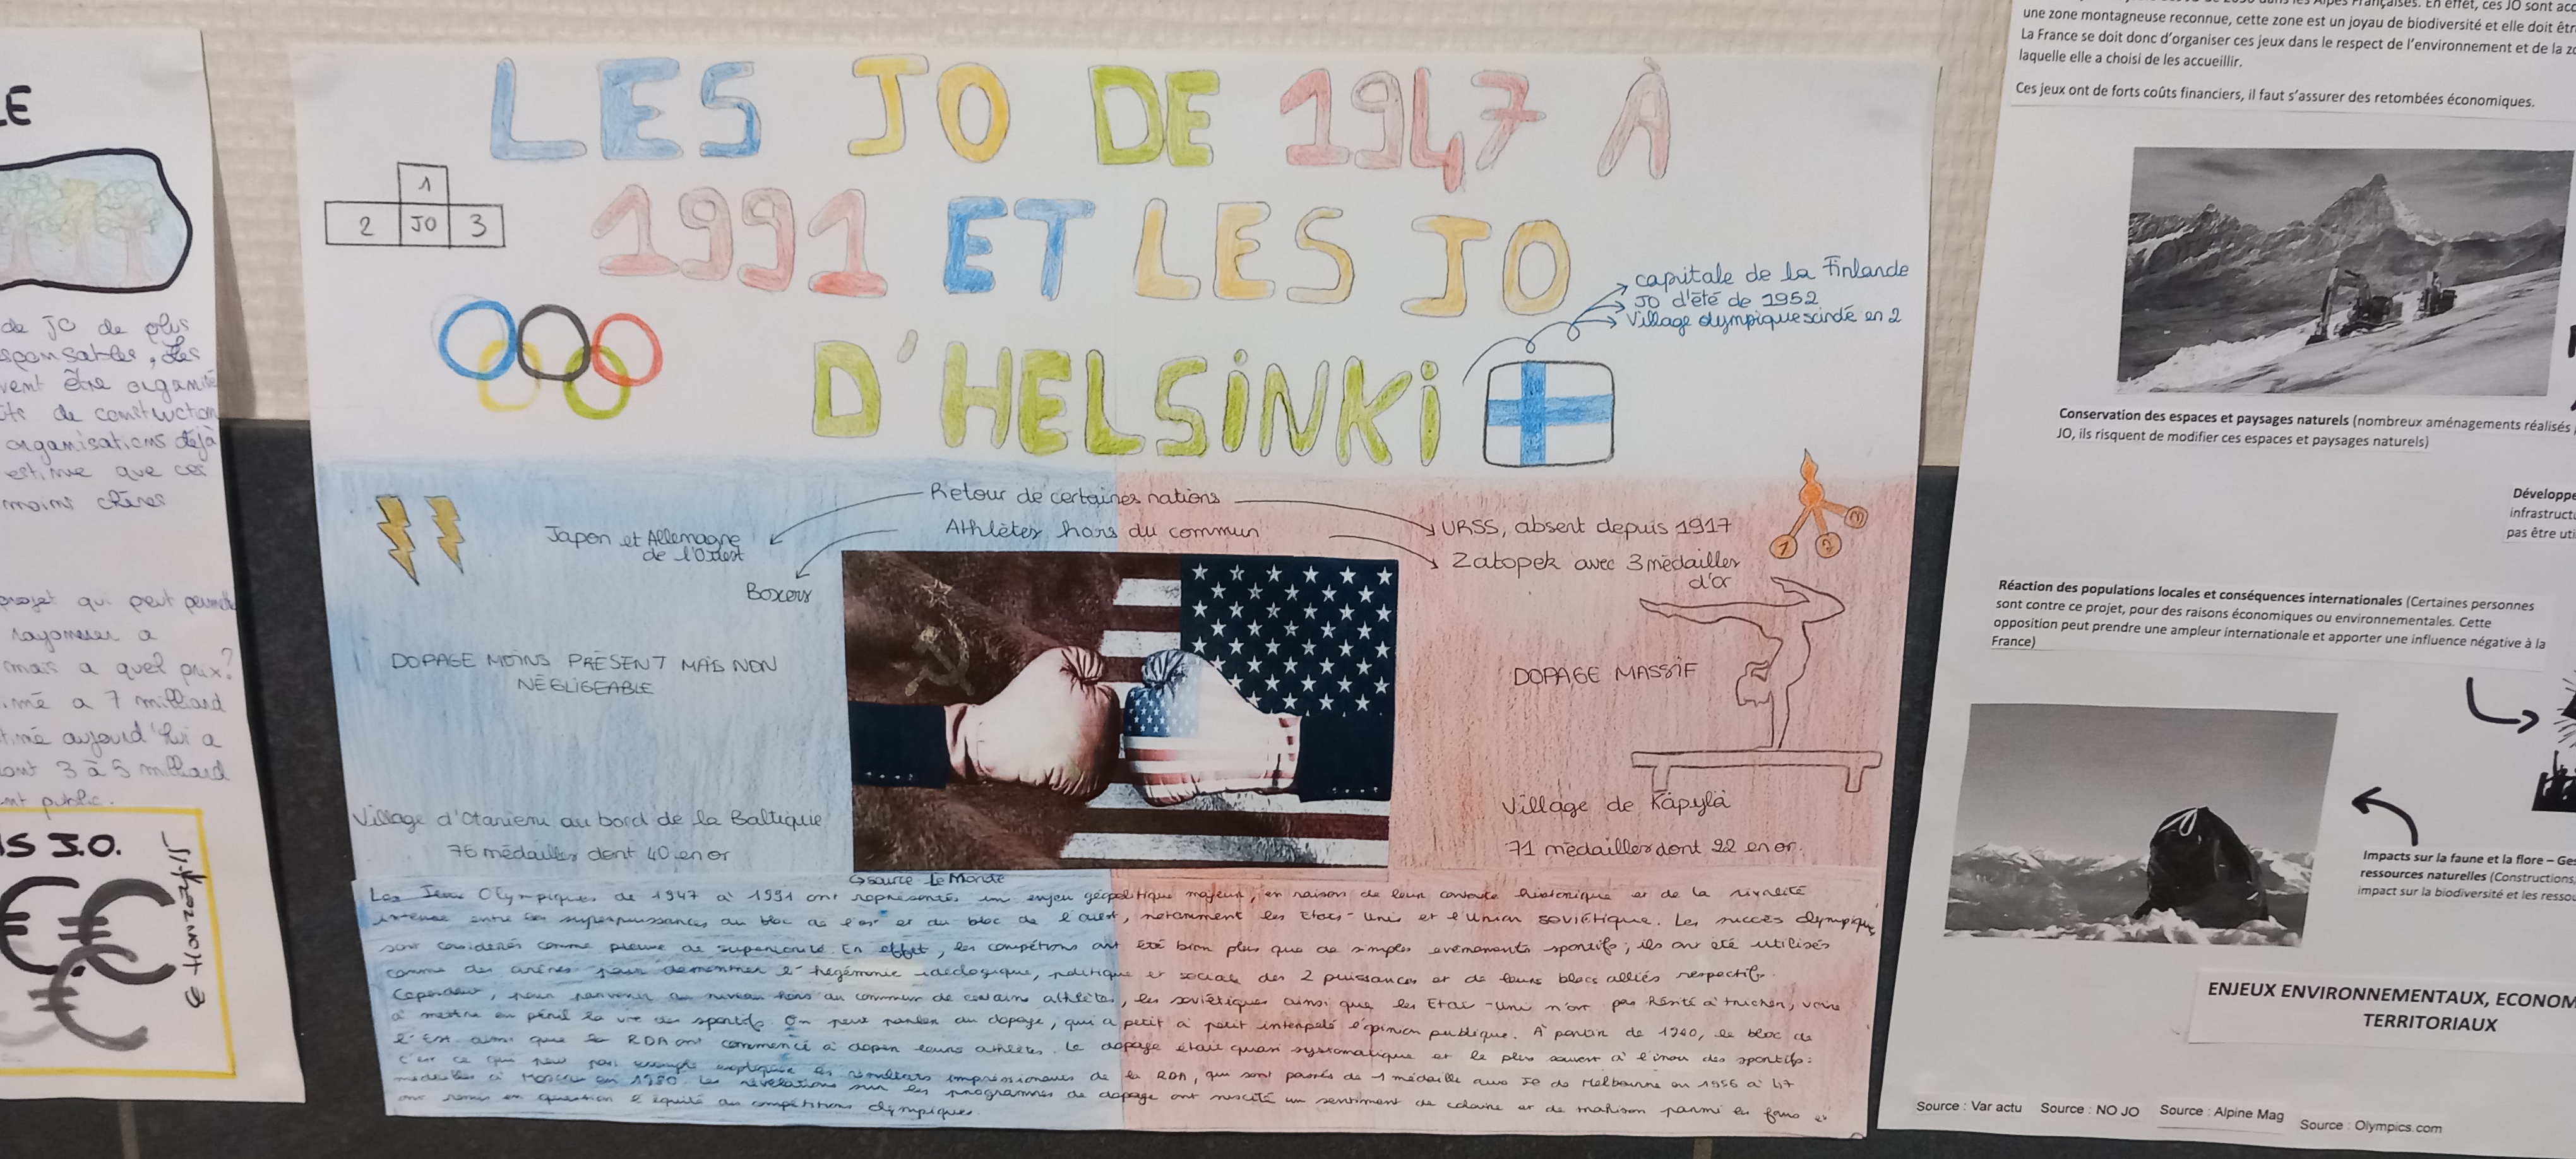 LE
de JO de plus
sponsables, des
vent être organisé
de construction
organisations déjà
estime que ces
moins chères
projet qui peut permet
rayonner a
mais a quel prix?
imé a 7 milliard
timé aujourd'hui a
ont 3 à 5 milliard
nt public.
S J.O.
LES JO DE 1947 À
1991 ET LES JO
D'HELSINKI
1
2 JO 3
capitale de la Finlande
JO d'été de 1952
Village olympique scindé en 2
Retour de certaines nations
Athlètes hors du commun
Japon et Allemagne
de l'Ouest
Boxers
URSS, absent depuis 1917
Zatopek avec 3 médailles
d'or
1 2 3
DOPAGE MOINS PRÉSENT MAIS NON
NÉGLIGEABLE
DOPAGE MASSIF
Village d'Otaniemi au bord de la Baltique
76 médailles dont 40 en or
Village de Käpylä
71 médailles dont 22 en or.
source Le Monde
Les Jeux Olympiques de 1947 à 1991 ont représentés un enjeu géopolitique majeur, en raison de leur contexte historique et de la rivalité
intense entre les superpuissances du bloc de l'est et du bloc de l'ouest, notamment les Etats-Unis et l'Union soviétique. Les succès olympiques
sont considérés comme preuve de supériorité. En effet, les compétions ont été bien plus que de simples evènements sportifs ; ils ont été utilisés
comme des arènes pour démontrer l'hégémonie idéologique, politique et sociale des 2 puissances et de leurs blocs alliés respectifs.
Cependant, pour parvenir au niveau hors du commun de certains athlètes, les soviétiques ainsi que les Etat-Uni n'ont pas hésité à tricher, voire
à mettre en péril la vie des sportifs. On peut parler du dopage, qui a petit à petit interpelé l'opinion publique. À partir de 1940, le bloc de
l'Est ainsi que la RDA ont commencé à doper leurs athlètes. Le dopage était quasi systématique et le plus souvent à l'insu des sportifs :
c'est ce qui peut par exemple expliquer les résultats impressionants de la RDA, qui sont passés de 1 médaille aux JO de Melbourne en 1956 à 47
médailles à Moscou en 1980. Les révélations sur les programmes de dopage ont suscité un sentiment de colère et de trahison parmi les fans et
ont remis en question l'équité des compétitions olympiques.
dans les Alpes Françaises. En effet, ces JO sont acc
une zone montagneuse reconnue, cette zone est un joyau de biodiversité et elle doit êtr
La France se doit donc d'organiser ces jeux dans le respect de l'environnement et de la zo
laquelle elle a choisi de les accueillir.
Ces jeux ont de forts coûts financiers, il faut s'assurer des retombées économiques.
Conservation des espaces et paysages naturels (nombreux aménagements réalisés
JO, ils risquent de modifier ces espaces et paysages naturels)
Développe
infrastructu
pas être uti
Réaction des populations locales et conséquences internationales (Certaines personnes
sont contre ce projet, pour des raisons économiques ou environnementales. Cette
opposition peut prendre une ampleur internationale et apporter une influence négative à la
France)
Impacts sur la faune et la flore – Ges
ressources naturelles (Constructions,
impact sur la biodiversité et les ressou
ENJEUX ENVIRONNEMENTAUX, ECONOM
TERRITORIAUX
Source : Var actu Source : NO JO Source : Alpine Mag Source : Olympics.com